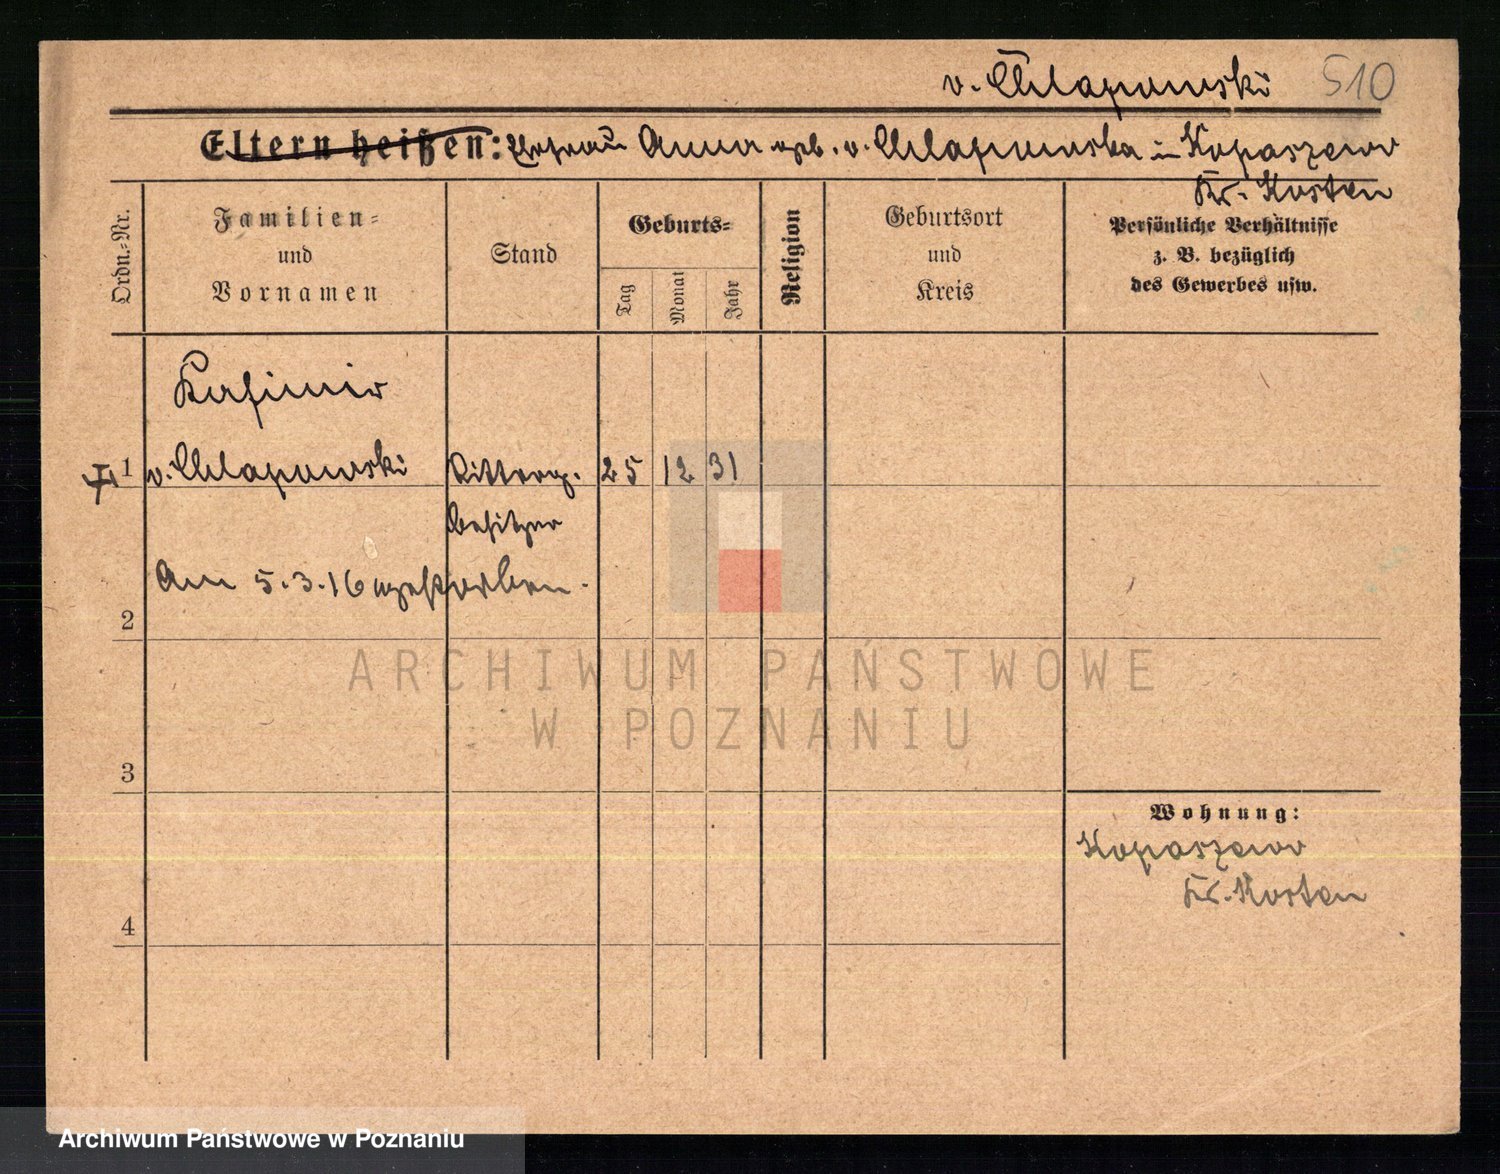 v. Chlapowski 510
Eltern heißen: Ehefrau Anna geb. v. Chlapowska in Kopaszewo
Kr. Kosten
Ordn.-Nr.
Familien-
und
Vornamen
Stand
Geburts-
Tag
Monat
Jahr
Religion
Geburtsort
und
Kreis
Persönliche Verhältnisse
z. B. bezüglich
des Gewerbes usw.
Kasimir
1 v. Chlapowski Ritterg. 25 12 31
besitzer
Am 5.3.16 gestorben.
2
ARCHIWUM PAŃSTWOWE
W POZNANIU
3
Wohnung:
Kopaszewo
Kr. Kosten
4
Archiwum Państwowe w Poznaniu